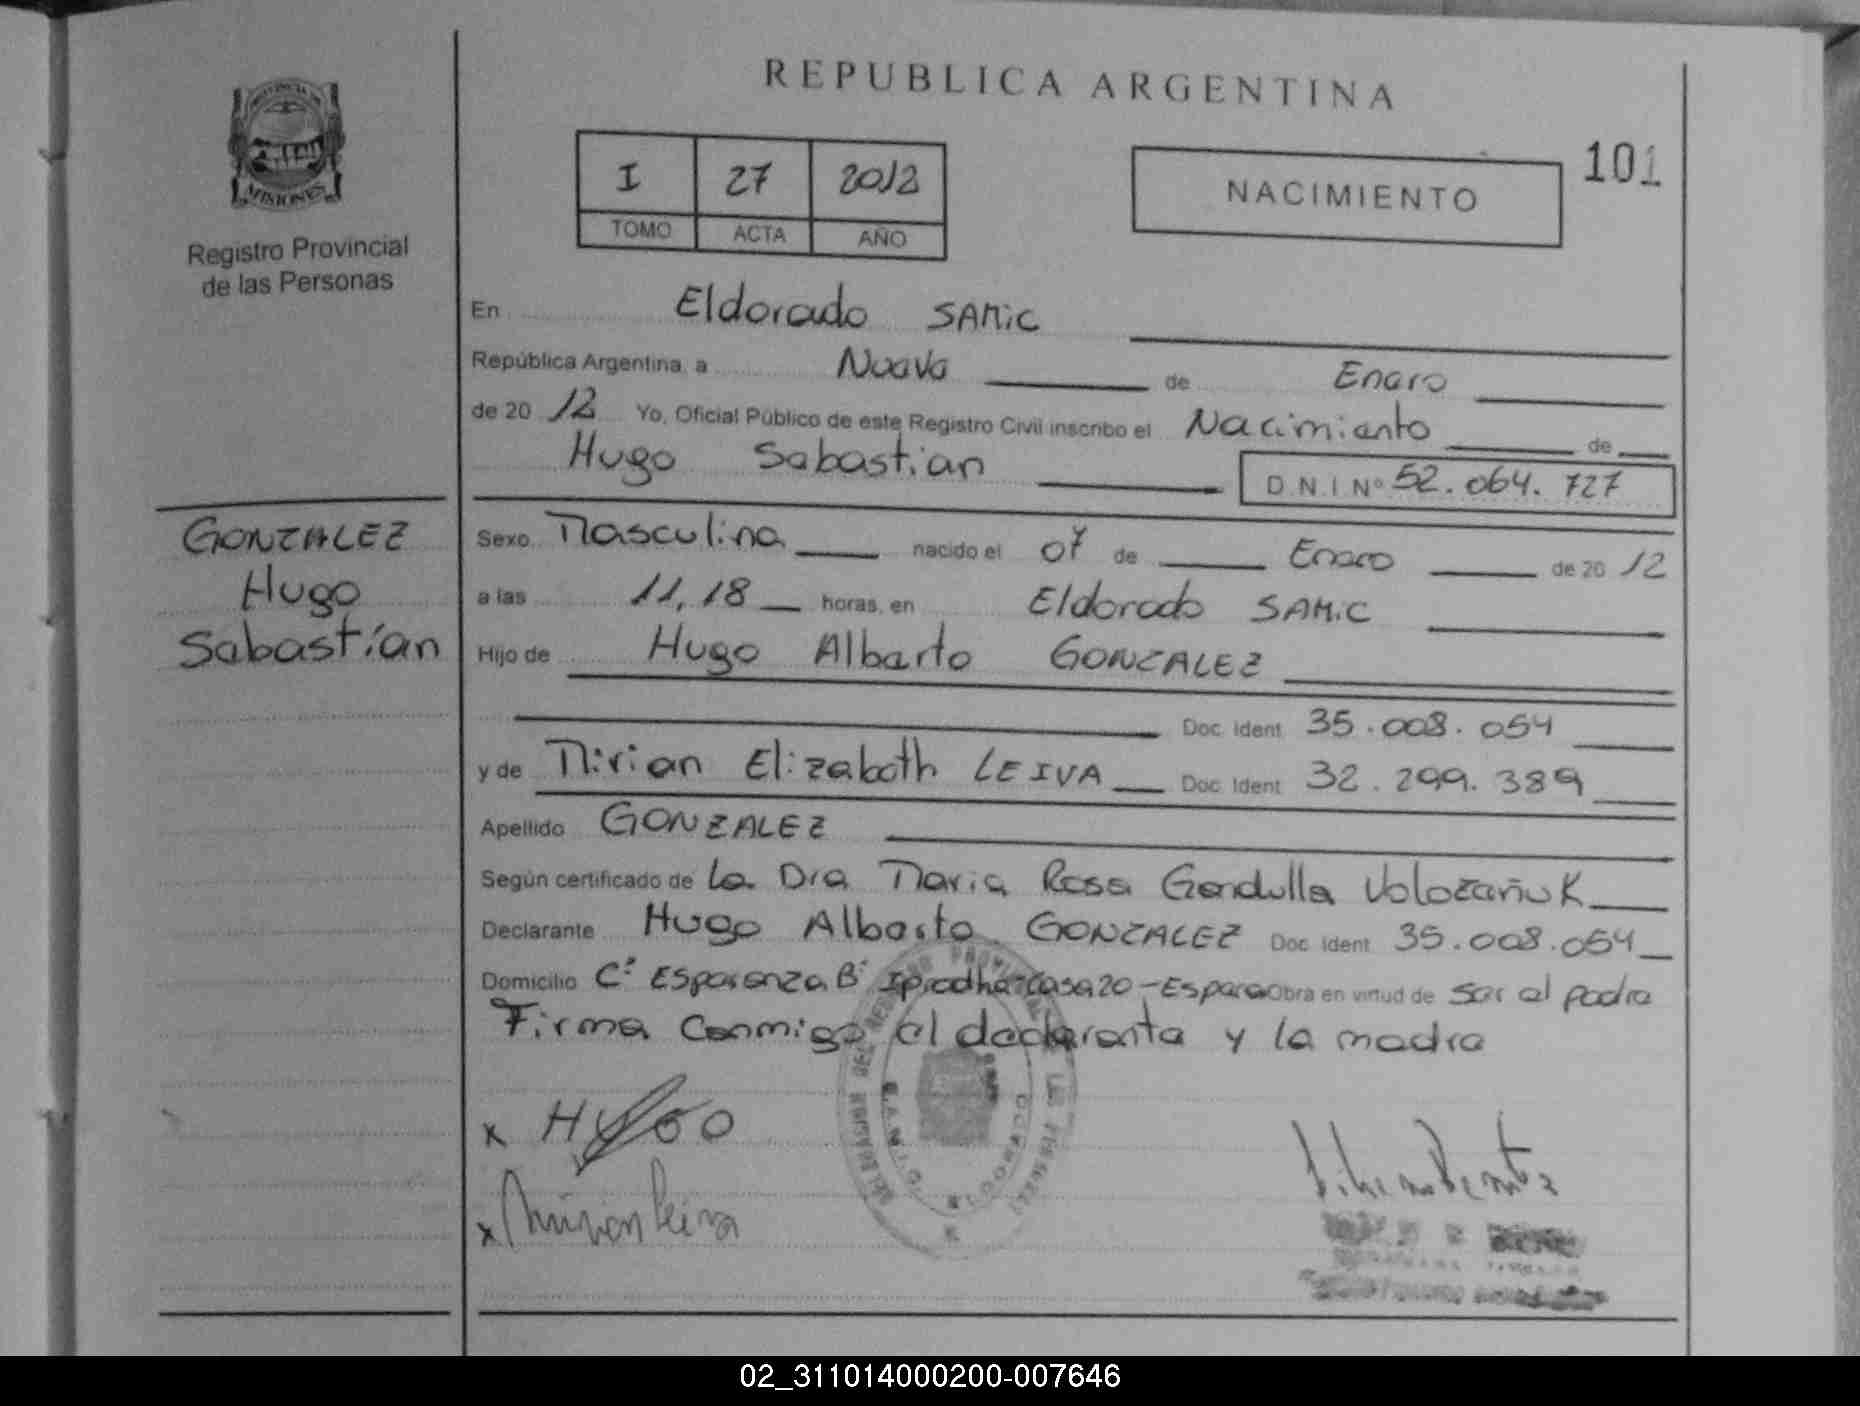 REPUBLICA ARGENTINA
PROVINCIA DE
MISIONES
Registro Provincial
de las Personas
I 27 2012
TOMO ACTA AÑO
NACIMIENTO
101
En Eldorado SAMIC
República Argentina, a Nueve de Enero
de 20 12 Yo, Oficial Público de este Registro Civil inscribo el Nacimiento de
Hugo Sebastian D.N.I Nº 52.064.727
GONZALEZ
Hugo
Sebastián
Sexo Masculino nacido el 07 de Enero de 20 12
a las 11,18 horas, en Eldorado SAMIC
Hijo de Hugo Alberto GONZALEZ
Doc. Ident. 35.008.054
y de Mirian Elizabeth LEIVA Doc. Ident. 32.299.389
Apellido GONZALEZ
Según certificado de La Dra Maria Rosa
Declarante Hugo Alberto GONZALEZ Doc. Ident. 35.008.054
Domicilio Cº Esperanza Bº Iprodha Casa 20 - Espera Obra en virtud de ser el padre
Firma Conmigo el declarante y la madre
x HUGO
x Mirian Leiva
02_311014000200-007646